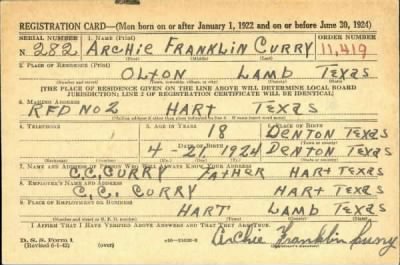 REGISTRATION CARD—(Men born on or after January 1, 1922 and on or before June 30, 1924)
SERIAL NUMBER 1. Name (Print) ORDER NUMBER
N. 282 ARCHIE FRANKLIN CURRY 11,419
(First) (Middle) (Last)
2. PLACE OF RESIDENCE (Print)
OLTON LAMB TEXAS
(Number and street) (Town, township, village, or city) (County) (State)
[THE PLACE OF RESIDENCE GIVEN ON THE LINE ABOVE WILL DETERMINE LOCAL BOARD
JURISDICTION; LINE 2 OF REGISTRATION CERTIFICATE WILL BE IDENTICAL]
3. MAILING ADDRESS
RFD NO 2 HART TEXAS
4. TELEPHONE 5. AGE IN YEARS 6. PLACE OF BIRTH
18 DENTON TEXAS
DATE OF BIRTH
4-21 1924 DENTON TEXAS
7. NAME AND ADDRESS OF PERSON WHO WILL ALWAYS KNOW YOUR ADDRESS
C.C. CURRY FATHER HART TEXAS
8. EMPLOYER'S NAME AND ADDRESS
C.C. CURRY HART TEXAS
9. PLACE OF EMPLOYMENT OR BUSINESS
HART LAMB TEXAS
(Number and street or R. F. D. number) (Town) (County) (State)
I AFFIRM THAT I HAVE VERIFIED ABOVE ANSWERS AND THAT THEY ARE TRUE.
D. S. S. Form 1
(Revised 6-1-42) (over) Archie Franklin Curry